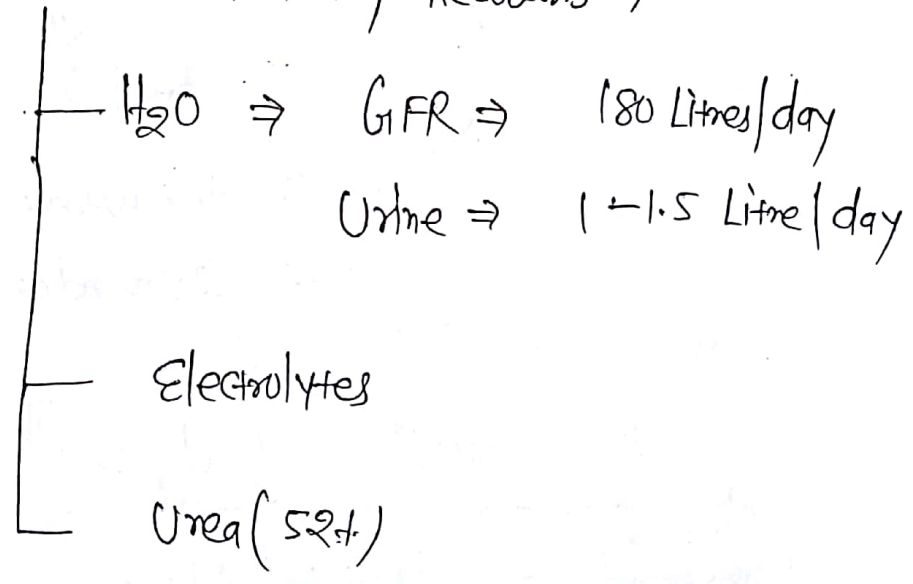 H₂O ⇒ GFR ⇒ 180 Litres/day
Urine ⇒ 1-1.5 Litre/day
Electrolytes
Urea (52%)